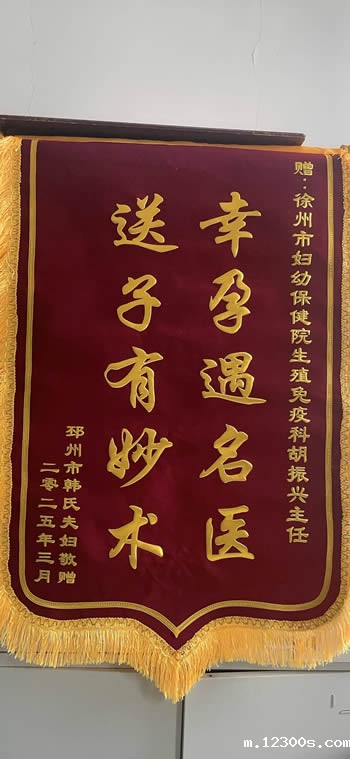 赠:徐州市妇幼保健院生殖免疫科胡振兴主任
幸孕遇名医
送子有妙术
邳州市韩氏夫妇敬赠
二零二五年三月
m.12300s.com